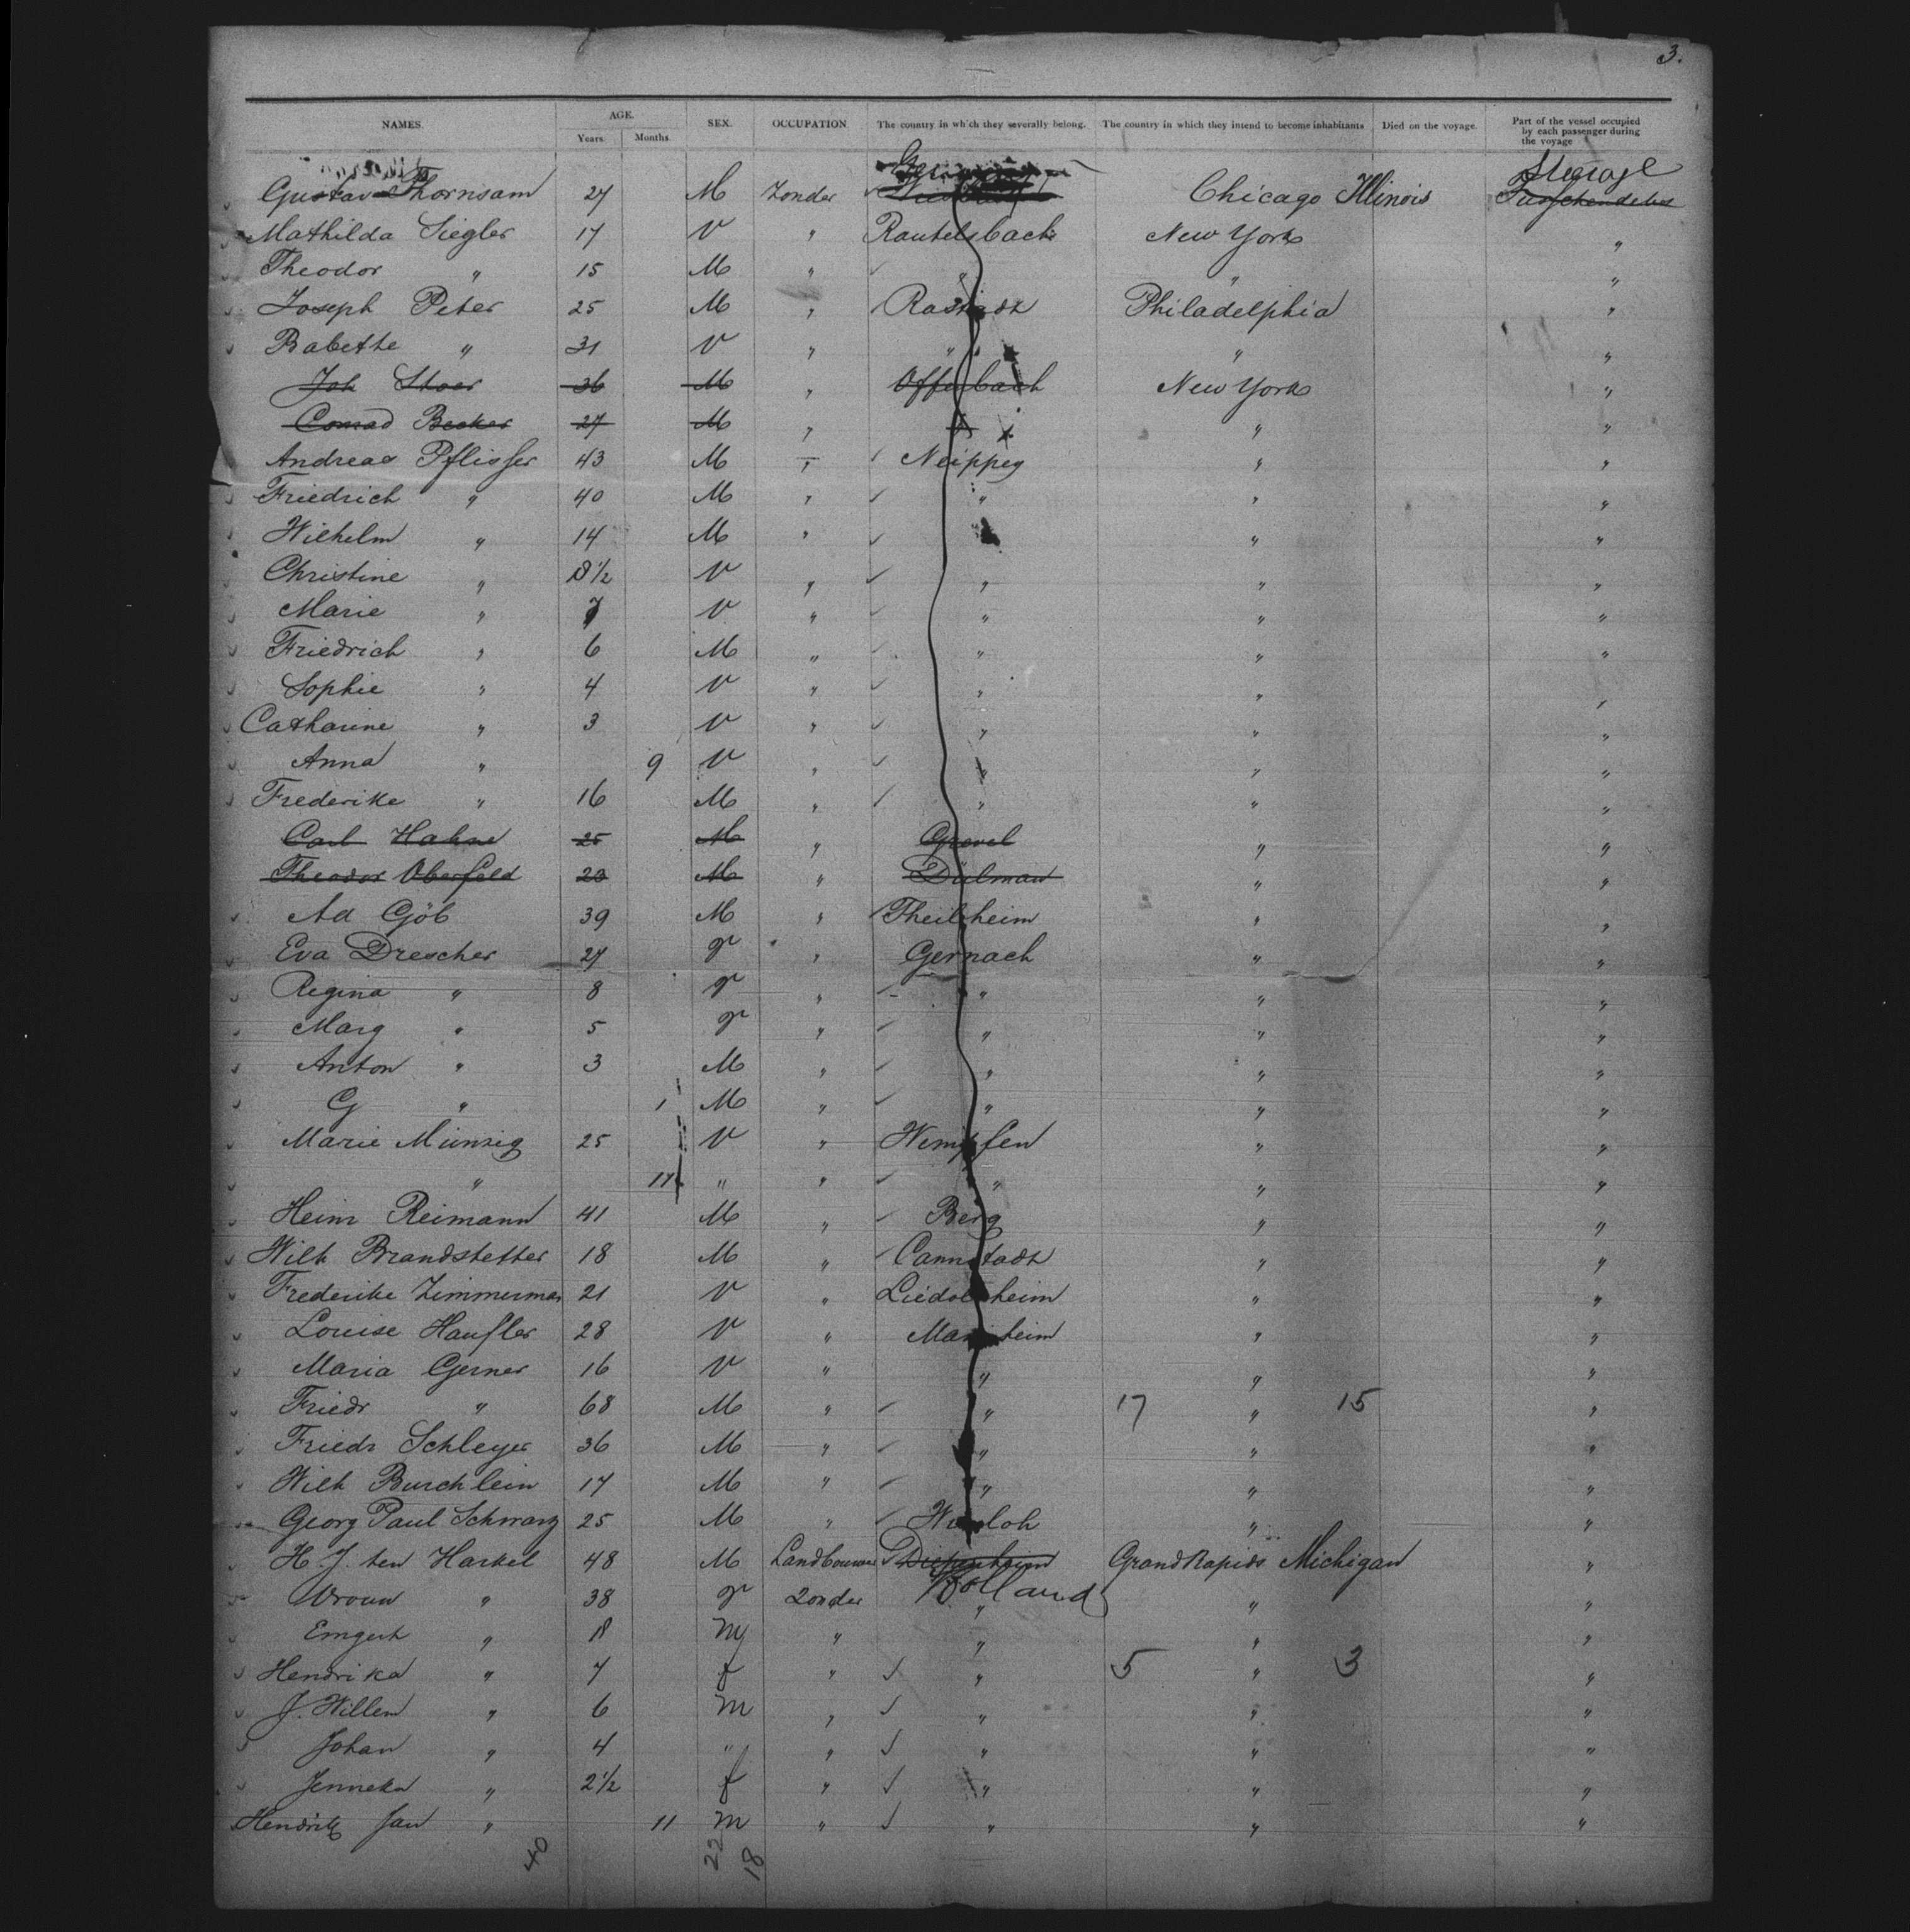 3.
NAMES. AGE. SEX. OCCUPATION The country in which they severally belong. The country in which they intend to become inhabitants Died on the voyage. Part of the vessel occupied by each passenger during the voyage
Years. Months.
Steerage
Gustav Thornsam 27 M Zonder Chicago Illinois
Mathilda Siegler 17 V " Rautelsbach New York "
Theodor " 15 M " " " "
Joseph Peter 25 M " Rastadt Philadelphia "
Babette " 31 V " " " "
Joh Stoer 36 M " Offenbach New York "
Conrad Becker 27 M " " " "
Andreas Pflisser 43 M " Neippeg " "
Friedrich " 40 M " " " "
Wilhelm " 14 M " " "
Christine " 8 1/2 V " " " "
Marie " 7 V " " " "
Friedrich " 6 M " " " "
Sophie " 4 V " " " "
Catharine " 3 V " " " "
Anna " 9 V " " " "
Frederike " 16 M " " " "
Carl Hahne 25 M " Grevel " "
Theodor Oberfeld 20 M " Dülman " "
Ad Göb 39 M " Theilheim " "
Eva Drescher 27 V " Gernach " "
Regina " 8 V " " " "
Marg " 5 V " " " "
Anton " 3 M " " " "
G " 1 M " " " "
Marie Münzig 25 V " Wimpfen " "
" 11 " " " " "
Heinr Reimann 41 M " Berg " "
Wilh Brandstetter 18 M " Cannstadt " "
Frederike Zimmerman 21 V " Liedolsheim " "
Louise Haufler 28 V " Mannheim " "
Maria Gerner 16 V " " " "
Friedr " 68 M " " 17 " 15 "
Friedr Schleyer 36 M " " " "
Wilh Burchlein 17 M " " " "
Georg Paul Schwarz 25 M " " "
H. J. ten Harkel 48 M Landbouwer Diepenheim Grand Rapids Michigan "
Vrouw " 38 V Zonder Holland " " "
" 18 M " " " "
Hendrika " 7 f " " 5 " 3 "
J. Willem " 6 m " " " "
Johan " 4 " " " " "
Jenneka " 2 1/2 f " " " "
Hendrik Jan " 11 m " " " "
40 22 18